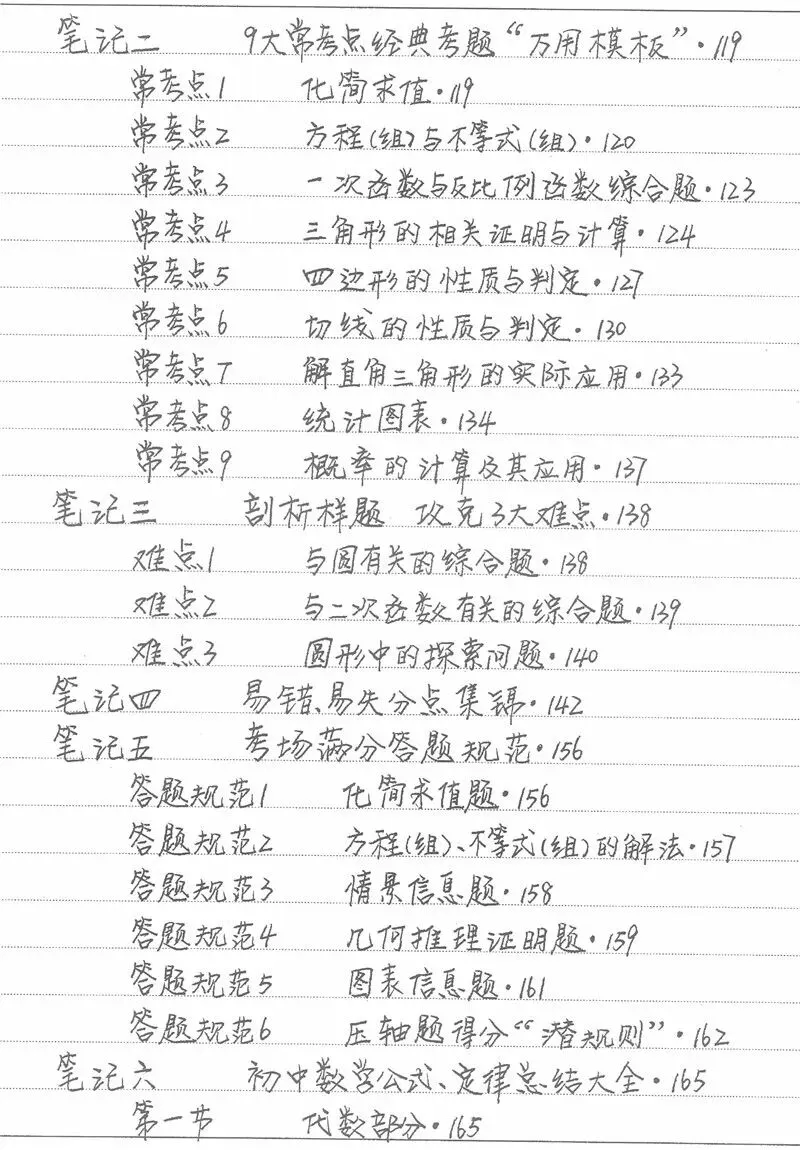 笔记二 9大常考点经典考题“万用模板”·119
常考点1 化简求值·119
常考点2 方程(组)与不等式(组)·120
常考点3 一次函数与反比例函数综合题·123
常考点4 三角形的相关证明与计算·124
常考点5 四边形的性质与判定·127
常考点6 切线的性质与判定·130
常考点7 解直角三角形的实际应用·133
常考点8 统计图表·134
常考点9 概率的计算及其应用·137
笔记三 剖析样题 攻克3大难点·138
难点1 与圆有关的综合题·138
难点2 与二次函数有关的综合题·139
难点3 圆形中的探索问题·140
笔记四 易错、易失分点集锦·142
笔记五 考场满分答题规范·156
答题规范1 化简求值题·156
答题规范2 方程(组)、不等式(组)的解法·157
答题规范3 情景信息题·158
答题规范4 几何推理证明题·159
答题规范5 图表信息题·161
答题规范6 压轴题得分“潜规则”·162
笔记六 初中数学公式、定律总结大全·165
第一节 代数部分·165